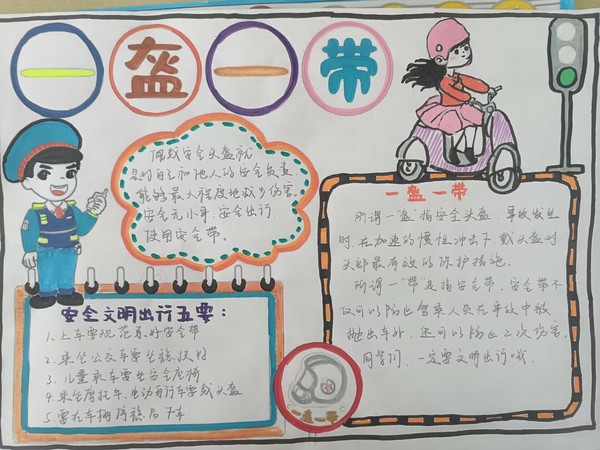 一盔一带
佩戴安全头盔就
是对自己和他人的安全负责,
能够最大程度地减少伤害.
安全无小事,安全出行,
使用安全带.
安全文明出行五要:
1.上车要规范系好安全带
2.乘坐公交车要坐稳扶好
3.儿童乘车要坐安全座椅
4.乘坐摩托车、电动自行车要戴头盔
5.要在车辆停稳后下车
一盔一带
所谓一"盔"指安全头盔,事故发生
时,在加速的惯性冲击下,戴头盔对
头部最有效的保护措施.
所谓一"带"是指安全带,安全带不
仅可以防止驾乘人员在事故中被
抛出车外,还可以防止二次伤害.
同学们,一定要文明出行哦.
一盔一带